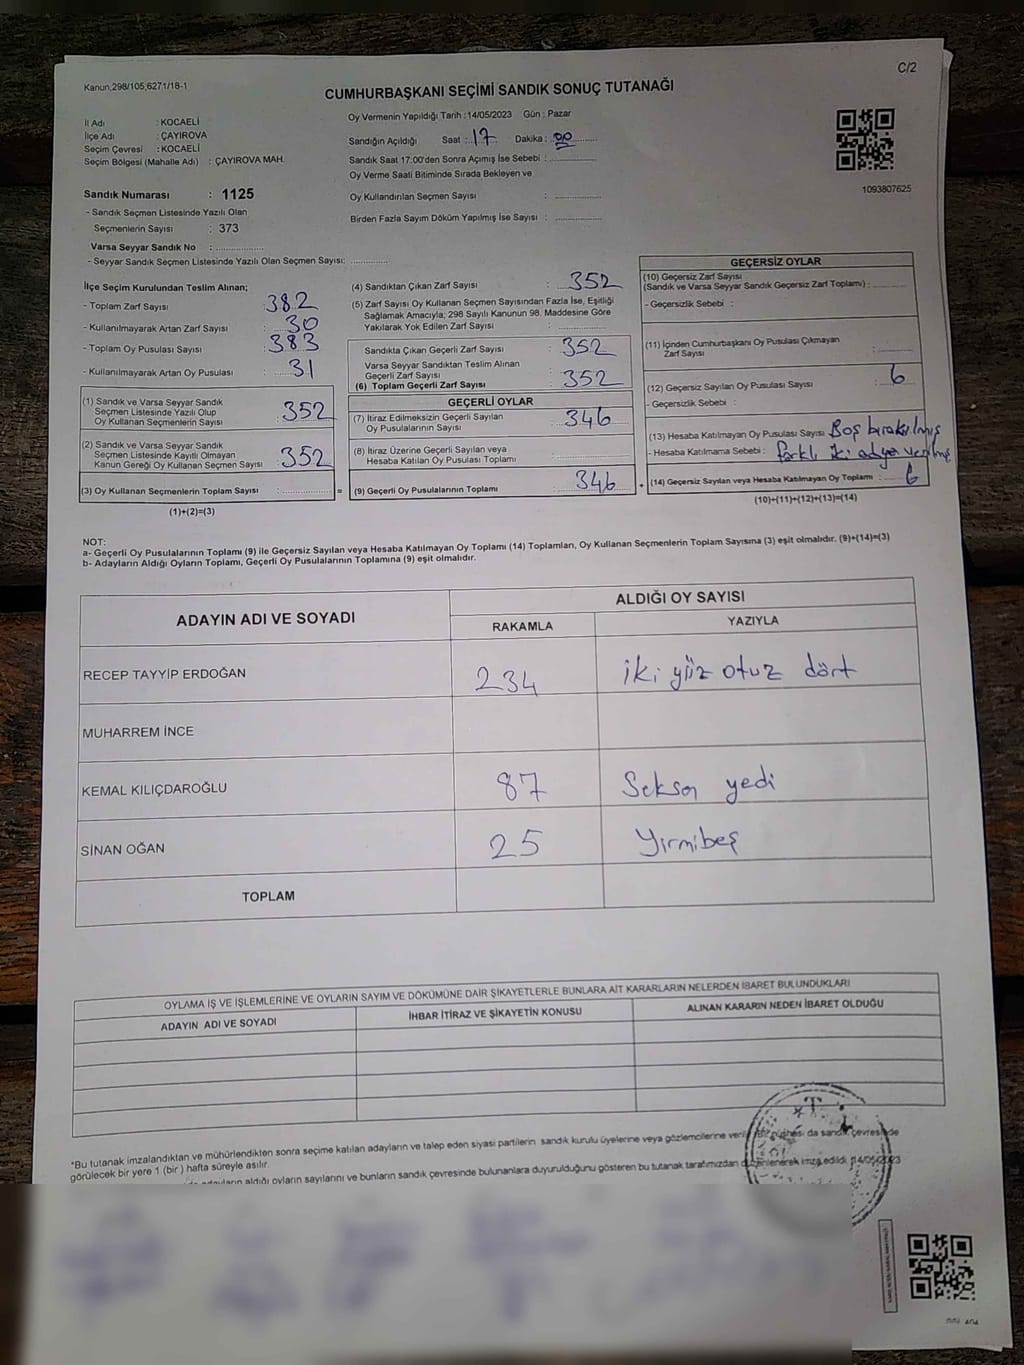 C/2
Kanun,298/105;6271/18-1
CUMHURBAŞKANI SEÇİMİ SANDIK SONUÇ TUTANAĞI
İl Adı : KOCAELİ
İlçe Adı : ÇAYIROVA
Seçim Çevresi : KOCAELİ
Seçim Bölgesi (Mahalle Adı) : ÇAYIROVA MAH.
Sandık Numarası : 1125
- Sandık Seçmen Listesinde Yazılı Olan
Seçmenlerin Sayısı : 373
Varsa Seyyar Sandık No : ................
- Seyyar Sandık Seçmen Listesinde Yazılı Olan Seçmen Sayısı: ............
Oy Vermenin Yapıldığı Tarih : 14/05/2023 Gün : Pazar
Sandığın Açıldığı Saat : 17 Dakika : 00
Sandık Saat 17:00'den Sonra Açımış İse Sebebi : ..............
Oy Verme Saati Bitiminde Sırada Bekleyen ve
Oy Kullandırılan Seçmen Sayısı : ..............
Birden Fazla Sayım Döküm Yapılmış İse Sayısı : ..............
1093807625
İlçe Seçim Kurulundan Teslim Alınan;
- Toplam Zarf Sayısı : 382
- Kullanılmayarak Artan Zarf Sayısı : 30
- Toplam Oy Pusulası Sayısı : 383
- Kullanılmayarak Artan Oy Pusulası : 31
(1) Sandık ve Varsa Seyyar Sandık
Seçmen Listesinde Yazılı Olup
Oy Kullanan Seçmenlerin Sayısı : 352
(2) Sandık ve Varsa Seyyar Sandık
Seçmen Listesinde Kayıtlı Olmayan
Kanun Gereği Oy Kullanan Seçmen Sayısı : 352
(3) Oy Kullanan Seçmenlerin Toplam Sayısı : .............. =
(1)+(2)=(3)
(4) Sandıktan Çıkan Zarf Sayısı : 352
(5) Zarf Sayısı Oy Kullanan Seçmen Sayısından Fazla İse, Eşitliği
Sağlamak Amacıyla; 298 Sayılı Kanunun 98. Maddesine Göre
Yakılarak Yok Edilen Zarf Sayısı : ..............
Sandıkta Çıkan Geçerli Zarf Sayısı : 352
Varsa Seyyar Sandıktan Teslim Alınan
Geçerli Zarf Sayısı :
(6) Toplam Geçerli Zarf Sayısı : 352
GEÇERLİ OYLAR
(7) İtiraz Edilmeksizin Geçerli Sayılan
Oy Pusulalarının Sayısı : 346
(8) İtiraz Üzerine Geçerli Sayılan veya
Hesaba Katılan Oy Pusulası Toplamı : ..............
(9) Geçerli Oy Pusulalarının Toplamı : 346 +
GEÇERSİZ OYLAR
(10) Geçersiz Zarf Sayısı
(Sandık ve Varsa Seyyar Sandık Geçersiz Zarf Toplamı) : ........
- Geçersizlik Sebebi :
(11) İçinden Cumhurbaşkanı Oy Pusulası Çıkmayan
Zarf Sayısı : ........
(12) Geçersiz Sayılan Oy Pusulası Sayısı : 6
- Geçersizlik Sebebi :
(13) Hesaba Katılmayan Oy Pusulası Sayısı: Boş bırakılmış
- Hesaba Katılmama Sebebi : farklı iki adaya verilmiş
(14) Geçersiz Sayılan veya Hesaba Katılmayan Oy Toplamı : 6
(10)+(11)+(12)+(13)=(14)
NOT:
a- Geçerli Oy Pusulalarının Toplamı (9) ile Geçersiz Sayılan veya Hesaba Katılmayan Oy Toplamı (14) Toplamları, Oy Kullanan Seçmenlerin Toplam Sayısına (3) eşit olmalıdır. (9)+(14)=(3)
b- Adayların Aldığı Oyların Toplamı, Geçerli Oy Pusulalarının Toplamına (9) eşit olmalıdır.
ADAYIN ADI VE SOYADI
ALDIĞI OY SAYISI
RAKAMLA YAZIYLA
RECEP TAYYİP ERDOĞAN 234 iki yüz otuz dört
MUHARREM İNCE
KEMAL KILIÇDAROĞLU 87 Seksen yedi
SİNAN OĞAN 25 Yirmibeş
TOPLAM
OYLAMA İŞ VE İŞLEMLERİNE VE OYLARIN SAYIM VE DÖKÜMÜNE DAİR ŞİKAYETLERLE BUNLARA AİT KARARLARIN NELERDEN İBARET BULUNDUKLARI
ADAYIN ADI VE SOYADI İHBAR İTİRAZ VE ŞİKAYETİN KONUSU ALINAN KARARIN NEDEN İBARET OLDUĞU
*Bu tutanak imzalandıktan ve mühürlendikten sonra seçime katılan adayların ve talep eden siyasi partilerin sandık kurulu üyelerine veya gözlemcilerine da sandık çevresinde
görülecek bir yere 1 (bir) hafta süreyle asılır.
adayların aldığı oyların sayılarını ve bunların sandık çevresinde bulunanlara duyurulduğunu gösteren bu tutanak tarafımızdan düzenlenerek imza edildi. 14/05/2023